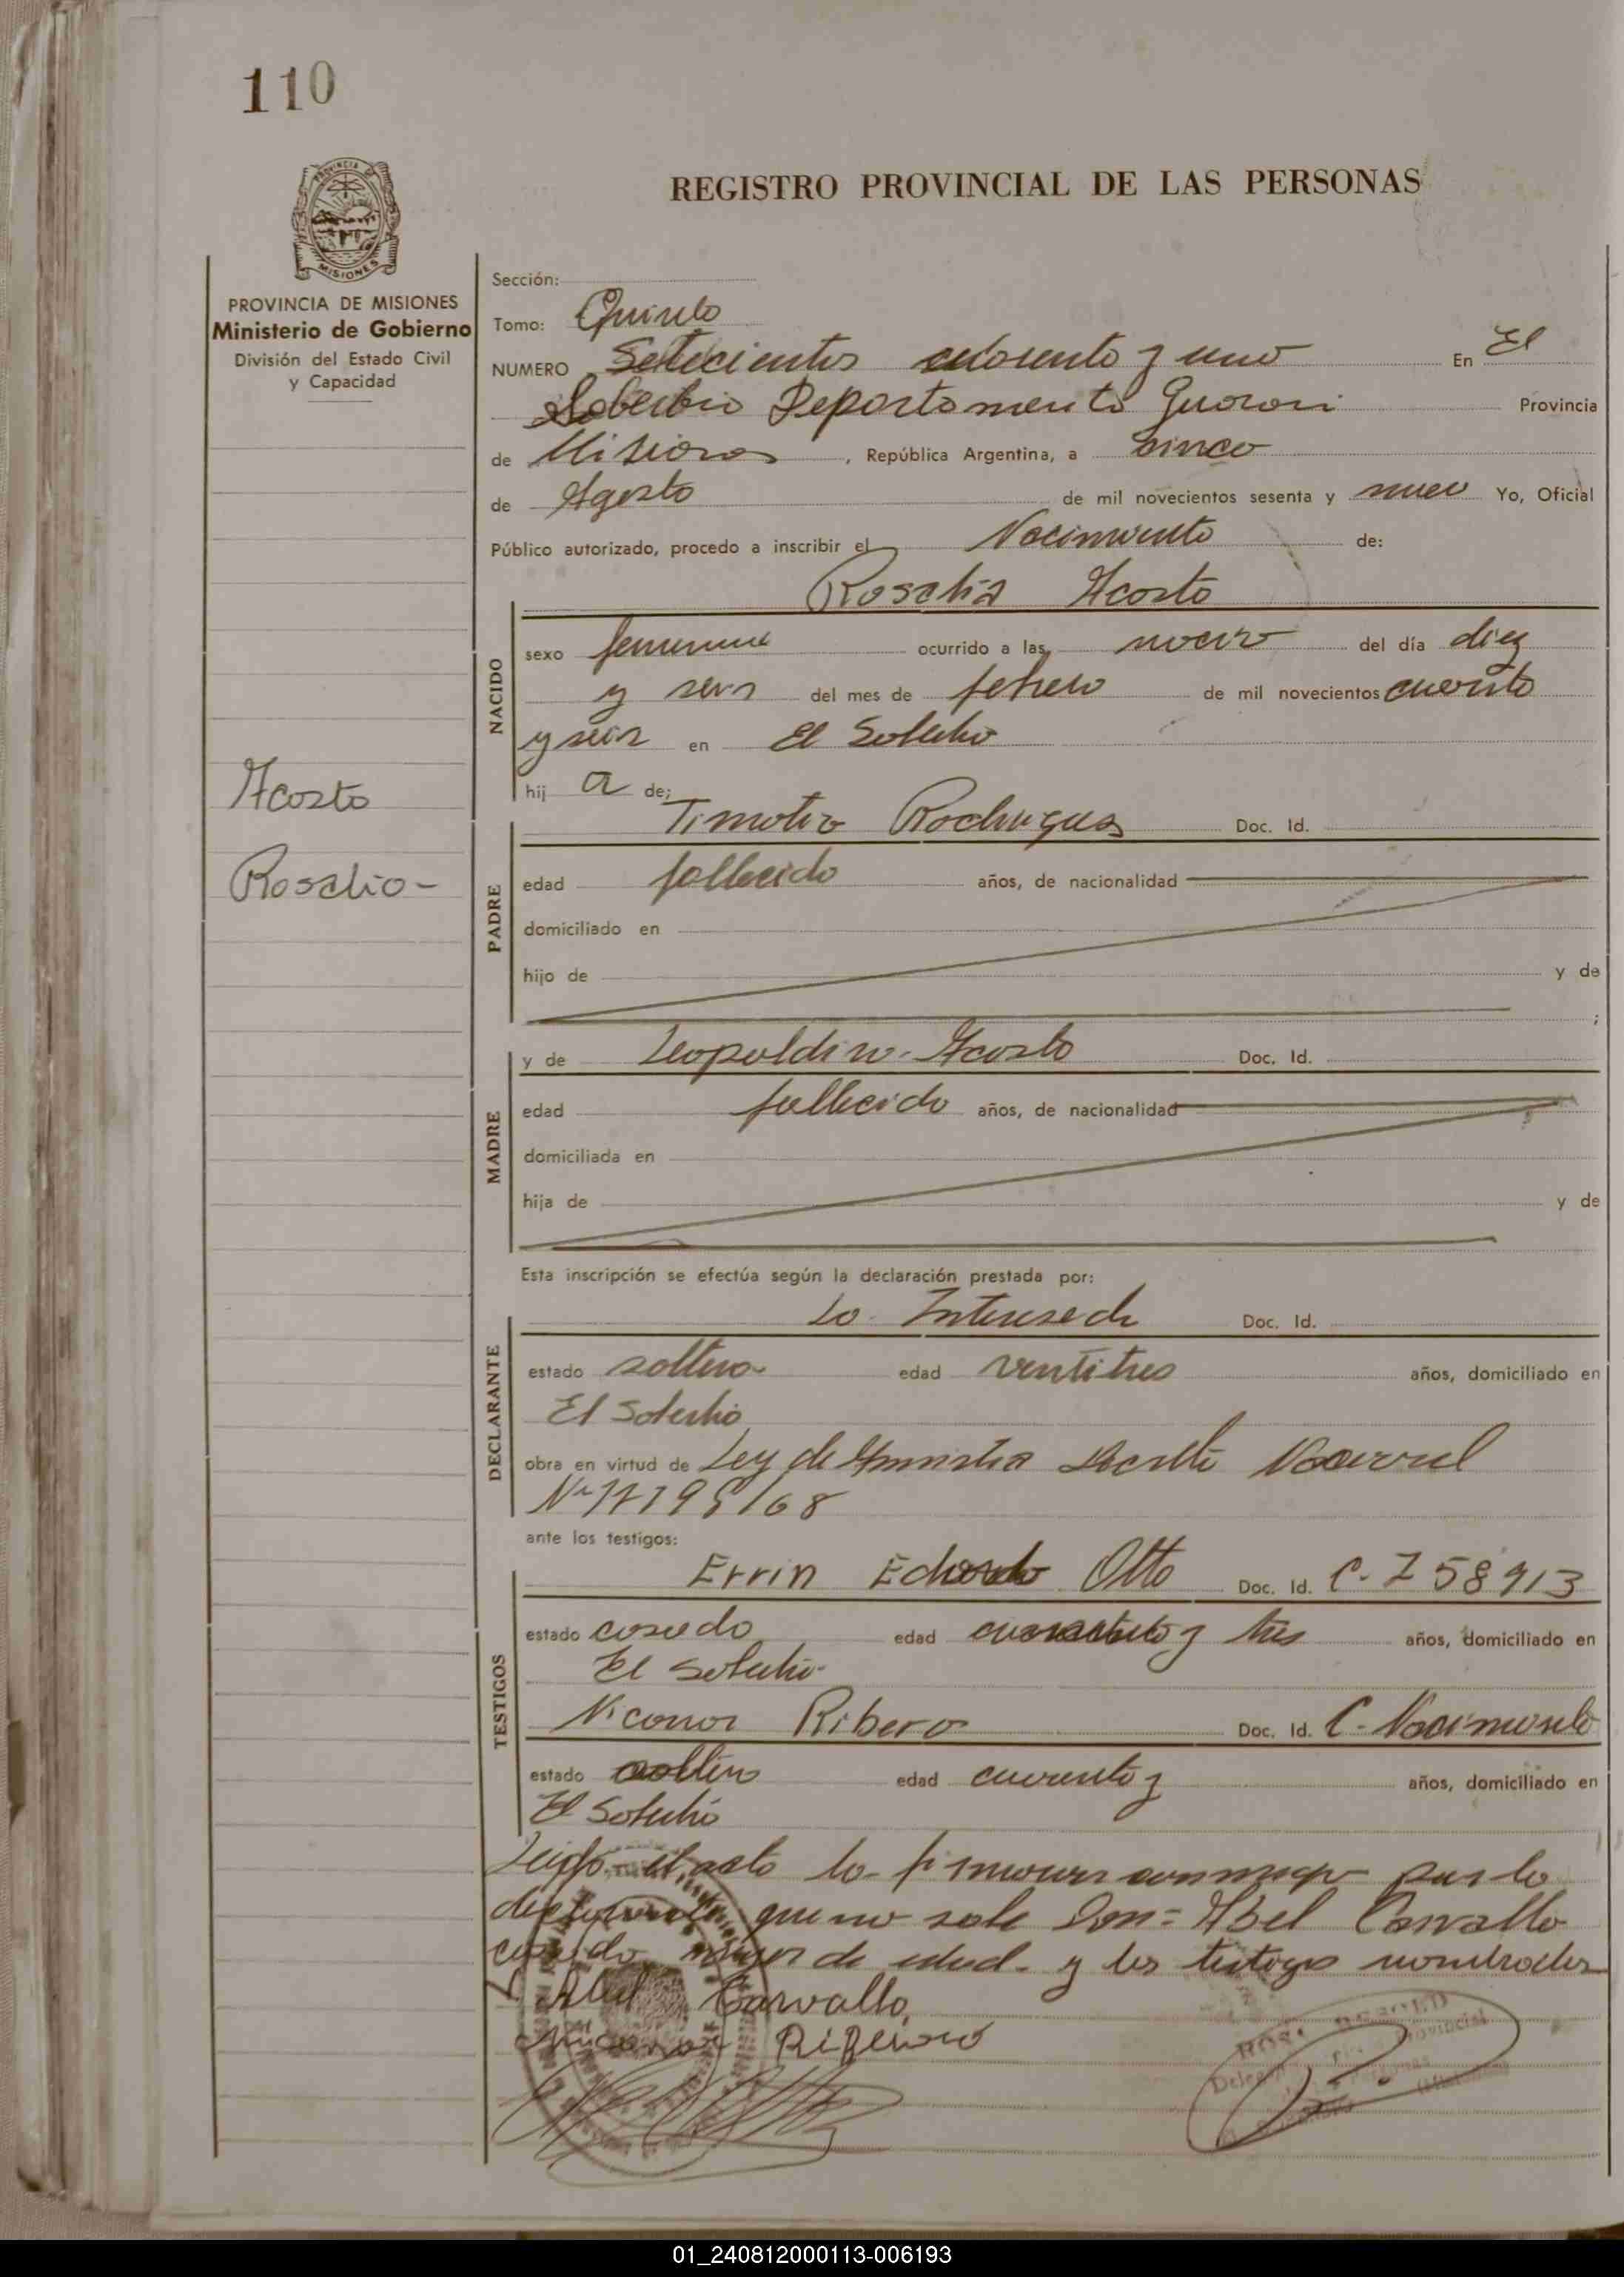 110
PROVINCIA DE MISIONES
MISIONES
PROVINCIA DE MISIONES
Ministerio de Gobierno
División del Estado Civil
y Capacidad
Acosta
Rosalia-
REGISTRO PROVINCIAL DE LAS PERSONAS
Sección:
Tomo: Quinto
NUMERO Setecientos cuarenta y uno En El
Soberbio Departamento Guarani Provincia
de Misiones, República Argentina, a cinco
de Agosto de mil novecientos sesenta y nueve Yo, Oficial
Público autorizado, procedo a inscribir el Nacimiento de:
Rosalia Acosta
NACIDO
sexo femenino ocurrido a las nueve del día diez
y seis del mes de febrero de mil novecientos cuarenta
y seis en El Soberbio
hij a de;
Timoteo Rodrigues Doc. Id.
PADRE
edad fallecido años, de nacionalidad
domiciliado en
hijo de y de
;
y de Leopoldina Acosta Doc. Id.
MADRE
edad fallecida años, de nacionalidad
domiciliada en
hija de y de
Esta inscripción se efectúa según la declaración prestada por:
La Interesada Doc. Id.
DECLARANTE
estado soltera edad ventitres años, domiciliado en
El Soberbio
obra en virtud de Ley de Amnistia
Nº 17195/68
ante los testigos:
Errin Eduardo Otto Doc. Id. C. I 58913
TESTIGOS
estado casado edad cuarenta y tres años, domiciliado en
El Soberbio
Nicanor Ribero Doc. Id. C. Nacimiento
estado soltero edad cuarenta y años, domiciliado en
El Soberbio
Leida el acta la firman conmigo por la
declarante que no sabe Don= Abel Carvallo
casado mayor de edad. y los testigos nombrados
Abel Carvallo
Nicanor Ribeiro